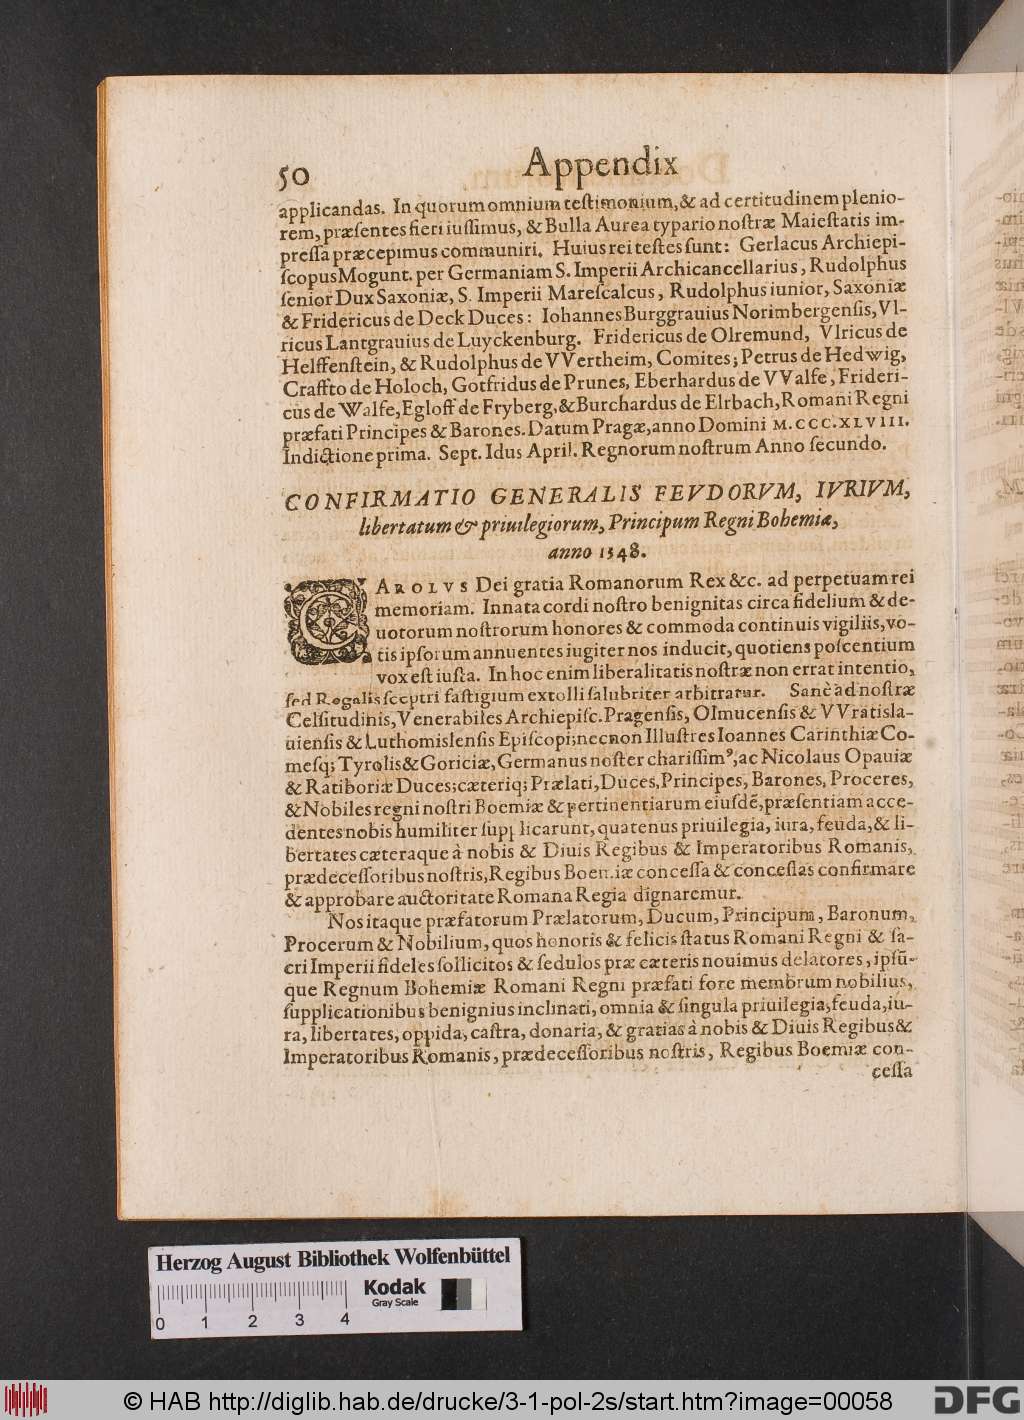 50 Appendix
applicandas. In quorum omnium teſtimonium, & ad certitudinem plenio-
rem, præſentes fieri iuſſimus, & Bulla Aurea typario noſtræ Maieſtatis im-
preſſa præcepimus communiri. Huius rei teſtes ſunt: Gerlacus Archiepi-
ſcopus Mogunt. per Germaniam S. Imperii Archicancellarius, Rudolphus
ſenior Dux Saxoniæ, S. Imperii Mareſcalcus, Rudolphus iunior, Saxoniæ
& Fridericus de Deck Duces: Iohannes Burggrauius Norimbergenſis, Vl-
ricus Lantgrauius de Luyckenburg. Fridericus de Olremund, Vlricus de
Helffenſtein, & Rudolphus de VVertheim, Comites; Petrus de Hedwig,
Craffto de Holoch, Gotfridus de Prunes, Eberhardus de VValfe, Frideri-
cus de Walfe, Egloff de Fryberg, & Burchardus de Elrbach, Romani Regni
præfati Principes & Barones. Datum Pragæ, anno Domini M.CCC.XLVIII.
Indictione prima. Sept. Idus April. Regnorum noſtrum Anno ſecundo.
CONFIRMATIO GENERALIS FEVDORVM, IVRIVM,
libertatum & priuilegiorum, Principum Regni Bohemiæ,
anno 1348.
CAROLVS Dei gratia Romanorum Rex &c. ad perpetuam rei
memoriam. Innata cordi noſtro benignitas circa fidelium & de-
uotorum noſtrorum honores & commoda continuis vigiliis, vo-
tis ipſorum annuentes iugiter nos inducit, quotiens poſcentium
vox eſt iuſta. In hoc enim liberalitatis noſtræ non errat intentio,
ſed Regalis ſceptri faſtigium extolli ſalubriter arbitratur. Sanè ad noſtræ
Celſitudinis, Venerabiles Archiepiſc. Pragenſis, Olmucenſis & VVratisla-
uienſis & Luthomislenſis Epiſcopi; necnon Illuſtres Ioannes Carinthiæ Co-
meſq; Tyrolis & Goriciæ, Germanus noſter chariſſimꝰ, ac Nicolaus Opauiæ
& Ratiboriæ Duces; cæteriq; Prælati, Duces, Principes, Barones, Proceres,
& Nobiles regni noſtri Boemiæ & pertinentiarum eiuſdẽ, præſentiam acce-
dentes nobis humiliter ſupplicarunt, quatenus priuilegia, iura, feuda, & li-
bertates cæteraque à nobis & Diuis Regibus & Imperatoribus Romanis,
prædeceſſoribus noſtris, Regibus Boemiæ conceſſa & conceſſas confirmare
& approbare auctoritate Romana Regia dignaremur.
Nos itaque præfatorum Prælatorum, Ducum, Principum, Baronum,
Procerum & Nobilium, quos honoris & felicis ſtatus Romani Regni & ſa-
cri Imperii fideles ſollicitos & ſedulos præ cæteris nouimus delatores, ipſũ-
que Regnum Bohemiæ Romani Regni præfati fore membrum nobilius,
ſupplicationibus benignius inclinati, omnia & ſingula priuilegia, feuda, iu-
ra, libertates, oppida, caſtra, donaria, & gratias à nobis & Diuis Regibus &
Imperatoribus Romanis, prædeceſſoribus noſtris, Regibus Boemiæ con-
ceſſa
Herzog August Bibliothek Wolfenbüttel
Kodak
Gray Scale
0 1 2 3 4
© HAB http://diglib.hab.de/drucke/3-1-pol-2s/start.htm?image=00058
DFG